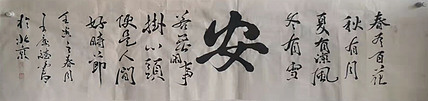 春有百花
秋有月
夏有涼風
冬有雪
安
若無閑事
掛心頭
便是人間
好時節
壬寅年春月
於北京